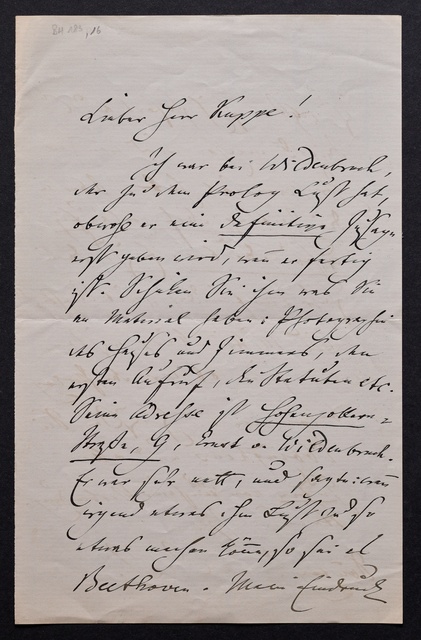 BH 183, 16
Lieber Herr Kuppe!
Ich war bei Wildenbruch,
der zu dem Prolog Lust hat,
obwohl er eine definitive Zusage
erst geben wird, wenn er fertig
ist. Schicken Sie ihm was Sie
an Material haben: Photographie
des Hauses und Zimmers, den
ersten Aufruf, die Statuten etc.
Seine Adresse ist Hohenzollern-
Straße, 9, Ernst v. Wildenbruch.
Er war sehr nett, und sagte: wenn
irgend etwas ihm Lust zu so
etwas machen könne, so sei es
Beethoven. Mein Eindruck